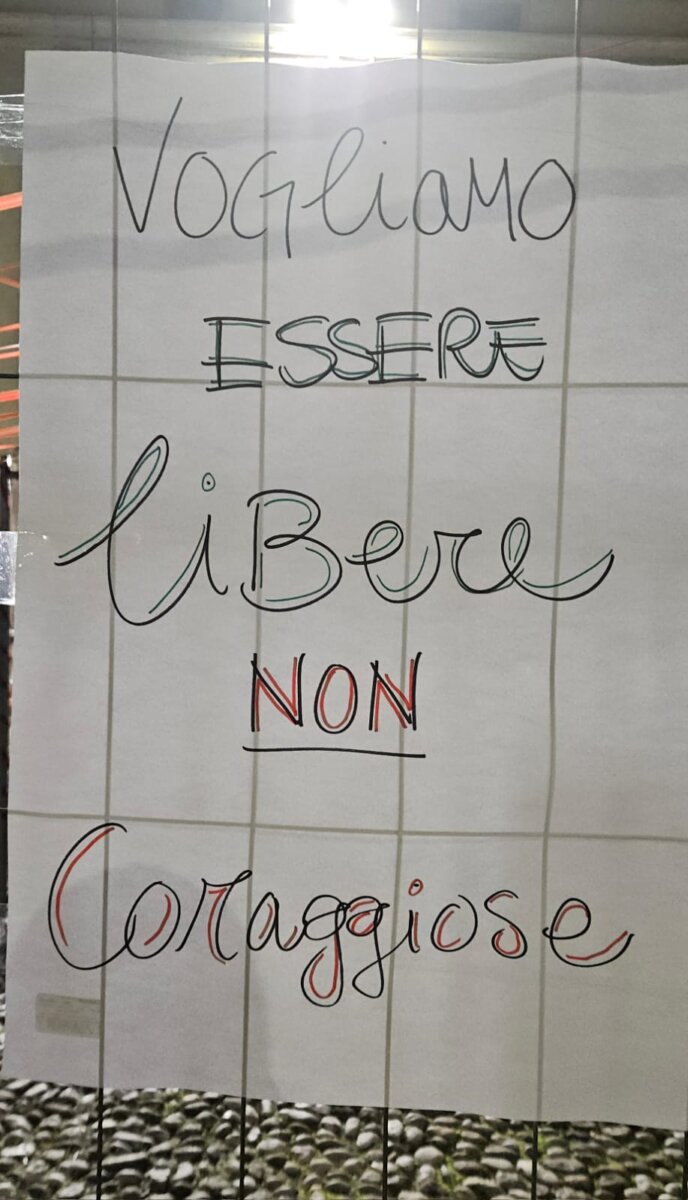 VOGliaMO
ESSERE
liBere
NON
Coraggiose